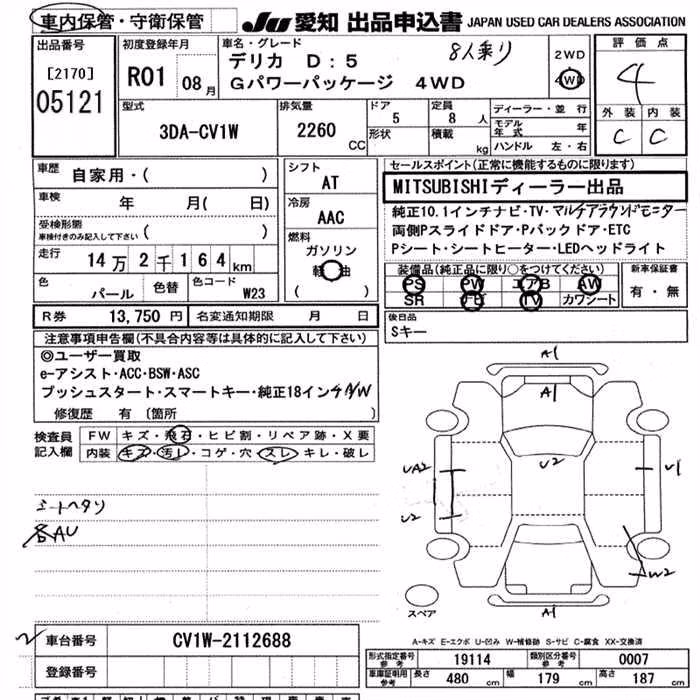 車内保管・守衛保管 JU 愛知 出品申込書 JAPAN USED CAR DEALERS ASSOCIATION
出品番号 初度登録年月 車名・グレード 8人乗り 2WD 評価点
[2170] R01 08月 デリカ D:5 4WD 4
05121 Gパワーパッケージ 4WD
型式 排気量 ドア 定員 ディーラー・並行 外装 内装
3DA-CV1W 2260 CC 5 8人 モデル年式 年 C C
形状 積載 kg ハンドル 左・右
車歴 自家用・( ) シフト AT セールスポイント(正常に機能するものに限ります)
車検 年 月( 日) 冷房 AAC MITSUBISHIディーラー出品
受検形態 車検付きのみ記入して下さい ( ) 燃料 純正10.1インチナビ・TV・マルチアラウンドモニター
走行 14万2千164km ガソリン 両側Pスライドドア・Pバックドア・ETC
軽油 Pシート・シートヒーター・LEDヘッドライト
色 パール 色替 色コード W23 ( ) 装備品(純正品に限り○をつけてください) 新車保証書
PS PW エアB AW 有・無
SR ナビ TV カワシート
R券 13,750 円 名変通知期限 月 日 後日品
Sキー
注意事項申告欄(不具合内容等は具体的に記入して下さい)
◎ユーザー買取
e-アシスト・ACC・BSW・ASC
プッシュスタート・スマートキー・純正18インチA/W
修復歴 有 〔箇所 〕
検査員記入欄 FW キズ・飛石・ヒビ割・リペア跡・X要
内装 キズ・汚レ・コゲ・穴・スレ・キレ・破レ
シートヘタリ
各AU
A1
A1
UA2 U2 U1
U2
W2
スペア A1
A-キズ E-エクボ U-凹み W-補修跡 S-サビ C-腐食 XX-交換済
車台番号 CV1W-2112688 形式指定番号 参考 19114 類別区分番号 参考 0007
登録番号 車庫証明用参考 長さ 480 cm 幅 179 cm 高さ 187 cm